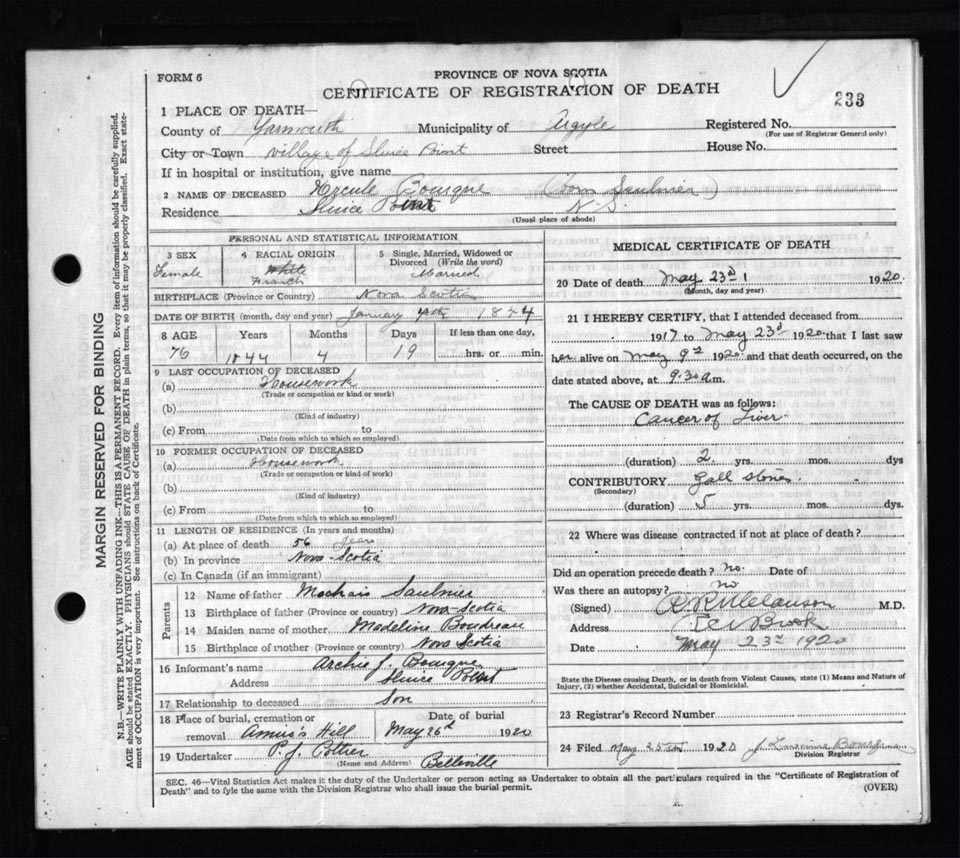 FORM 6
PROVINCE OF NOVA SCOTIA
CERTIFICATE OF REGISTRATION OF DEATH
233
1 PLACE OF DEATH—
County of Yarmouth Municipality of Argyle Registered No.
(For use of Registrar General only)
City or Town village of Sluice Point Street House No.
If in hospital or institution, give name
2 NAME OF DECEASED Hercule Bourque (born Saulnier)
Residence Sluice Point N.S.
(Usual place of abode)
PERSONAL AND STATISTICAL INFORMATION
3 SEX 4 RACIAL ORIGIN 5 Single, Married, Widowed or Divorced (Write the word)
Female White French Married
BIRTHPLACE (Province or Country) Nova Scotia
DATE OF BIRTH (month, day and year) January 4th 1844
8 AGE Years Months Days If less than one day,
76 1844 4 19 hrs. or min.
9 LAST OCCUPATION OF DECEASED
(a) Housework
(Trade or occupation or kind or work)
(b)
(Kind of industry)
(c) From to
(Date from which to which so employed)
10 FORMER OCCUPATION OF DECEASED
(a) Housework
(Trade or occupation or kind of work)
(b)
(Kind of industry)
(c) From to
(Date from which to which so employed)
11 LENGTH OF RESIDENCE (In years and months)
(a) At place of death 56 years
(b) In province Nova Scotia
(c) In Canada (if an immigrant)
Parents
12 Name of father Saulnier
13 Birthplace of father (Province or Country) Nova-Scotia
14 Maiden name of mother Madeline Boudreau
15 Birthplace of mother (Province or Country) Nova Scotia
16 Informant's name Archie J. Bourque
Address Sluice Point
17 Relationship to deceased Son
18 Place of burial, cremation or removal Hill Date of burial May 26th 1920
19 Undertaker P. J. Pottier Belleville
(Name and Address)
MEDICAL CERTIFICATE OF DEATH
20 Date of death May 23d 1920.
(Month, day and year)
21 I HEREBY CERTIFY, that I attended deceased from
1917 to May 23d 1920 that I last saw
her alive on May 9th 1920 and that death occurred, on the
date stated above, at 9.30 a.m.
The CAUSE OF DEATH was as follows:
Cancer of Liver.
(duration) 2 yrs. mos. dys
CONTRIBUTORY Gall stones.
(Secondary)
(duration) 5 yrs. mos. dys.
22 Where was disease contracted if not at place of death?
Did an operation precede death? no. Date of
Was there an autopsy? no
(Signed) M.D.
Address Brook
Date May 23rd 1920
State the Disease causing Death, or in death from Violent Causes, state (1) Means and Nature of
Injury, (2) whether Accidental, Suicidal or Homicidal.
23 Registrar's Record Number
24 Filed May 25th 1920
Division Registrar
SEC. 46—Vital Statistics Act makes it the duty of the Undertaker or person acting as Undertaker to obtain all the particulars required in the "Certificate of Registration of
Death" and to fyle the same with the Division Registrar who shall issue the burial permit.
(OVER)
MARGIN RESERVED FOR BINDING
N.B.—WRITE PLAINLY WITH UNFADING INK—THIS IS A PERMANENT RECORD. Every item of information should be carefully supplied.
AGE should be stated EXACTLY. PHYSICIANS should STATE CAUSE OF DEATH in plain terms, so that it may be properly classified. Exact statement of OCCUPATION is very important. See instructions on back of Certificate.